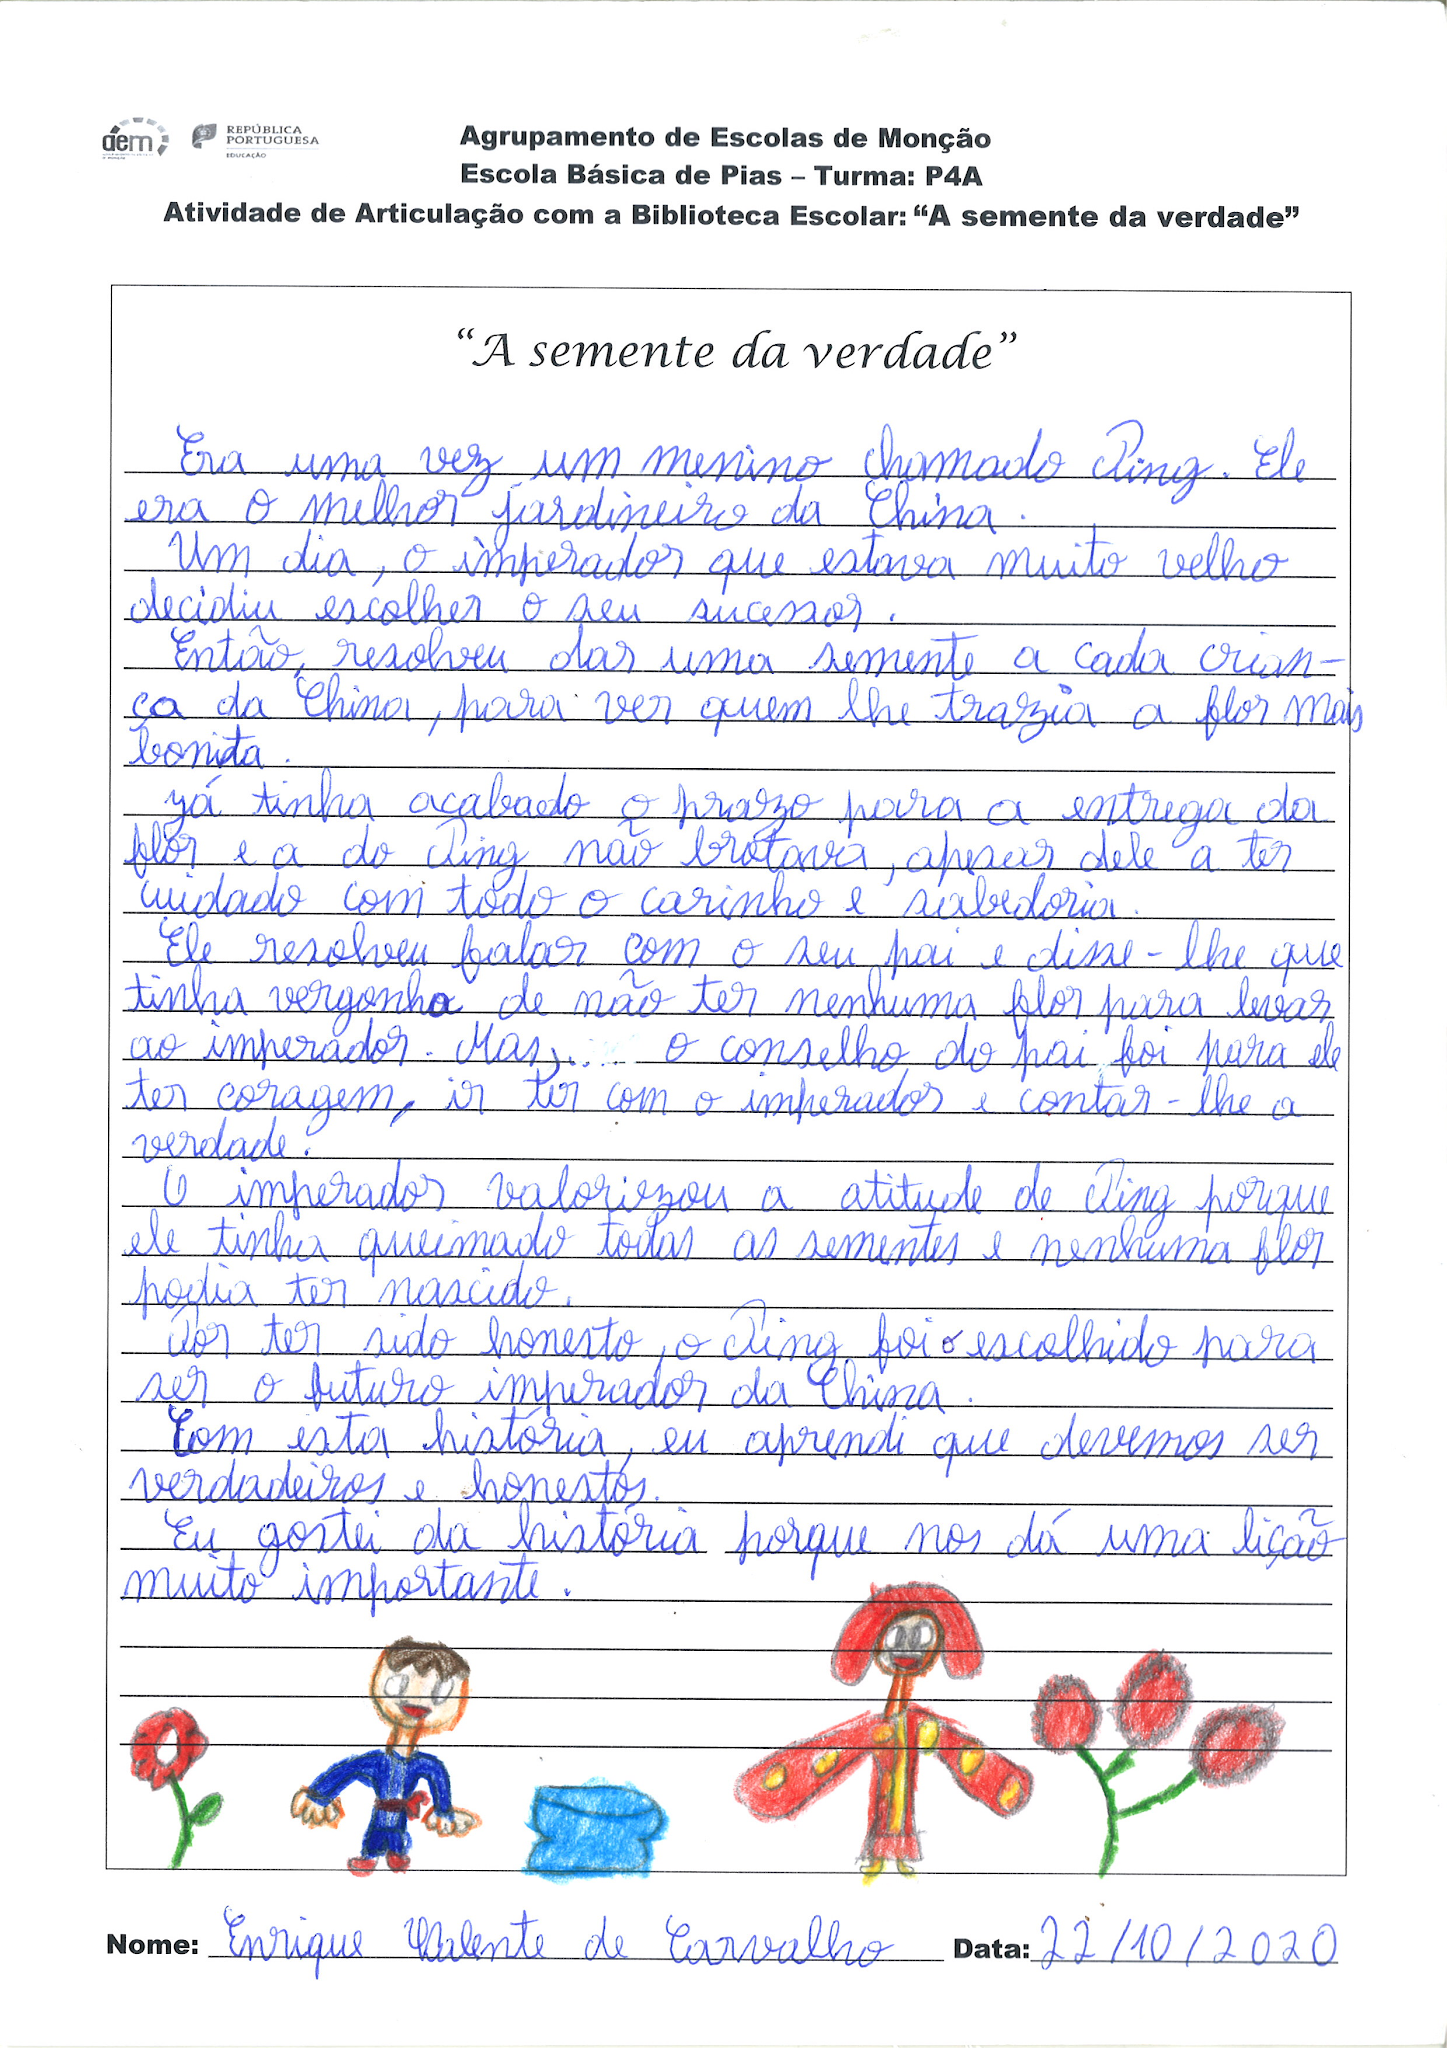 aem
REPÚBLICA
PORTUGUESA
EDUCAÇÃO
Agrupamento de Escolas de Monção
Escola Básica de Pias – Turma: P4A
Atividade de Articulação com a Biblioteca Escolar: “A semente da verdade”
“A semente da verdade”
Era uma vez um menino chamado Ping. Ele
era o melhor jardineiro da China.
Um dia, o imperador que estava muito velho
decidiu escolher o seu sucessor.
Então, resolveu dar uma semente a cada crian-
ça da China, para ver quem lhe trazia a flor mais
bonita.
Já tinha acabado o prazo para a entrega da
flor e a do Ping não brotava, apesar dele a ter
cuidado com todo o carinho e sabedoria.
Ele resolveu falar com o seu pai e disse-lhe que
tinha vergonha de não ter nenhuma flor para levar
ao imperador. Mas,... o conselho do pai foi para ele
ter coragem, ir ter com o imperador e contar-lhe a
verdade.
O imperador valorizou a atitude de Ping porque
ele tinha queimado todas as sementes e nenhuma flor
podia ter nascido.
Por ter sido honesto, o Ping foi o escolhido para
ser o futuro imperador da China.
Com esta história, eu aprendi que devemos ser
verdadeiros e honestos.
Eu gostei da história porque nos dá uma lição
muito importante.
Nome: Enrique Valente de Carvalho Data: 22/10/2020